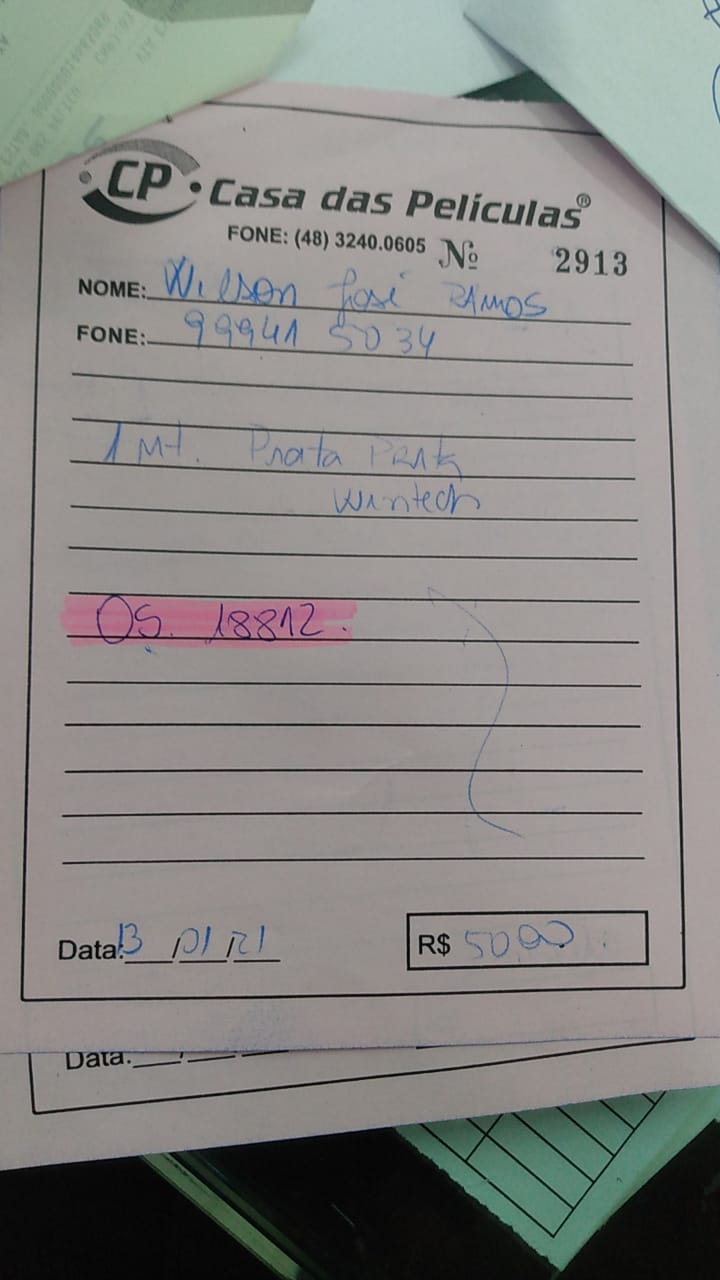 CP Casa das Películas®
FONE: (48) 3240.0605 Nº 2913
NOME: Wilson José RAMOS
FONE: 99941 5034
1 Mt. Prata
Wintech
OS. 18812.
Data: 13/01/21 R$ 50,00
Data: